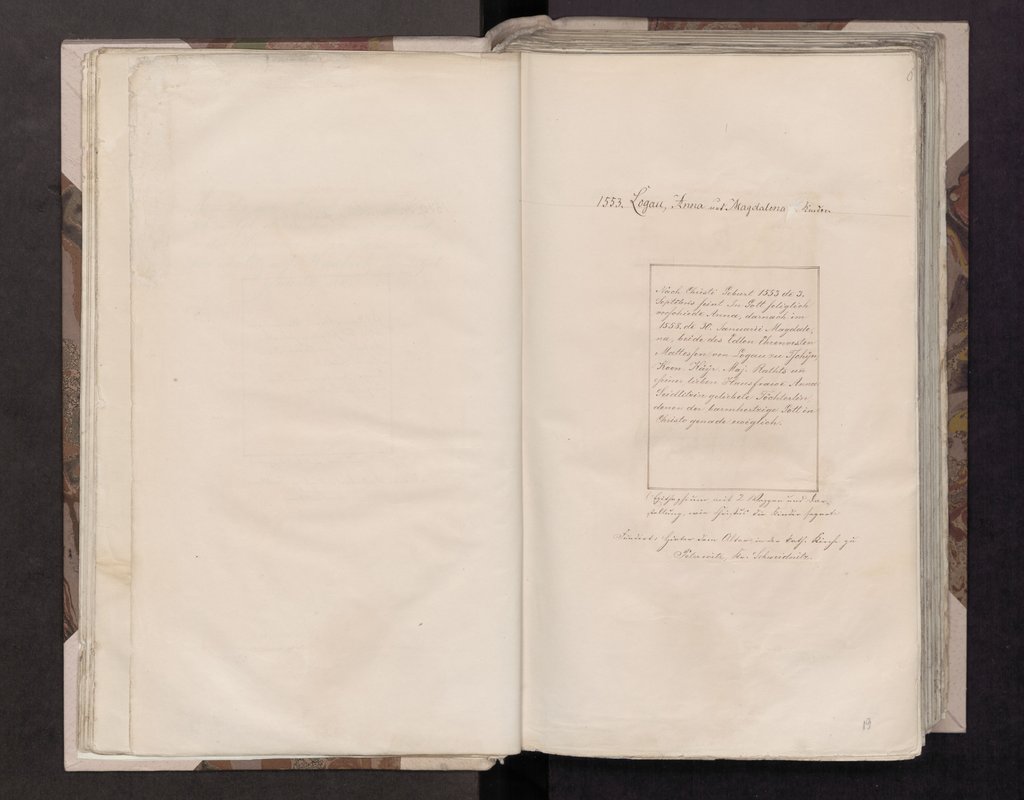 6
1553. Logau, Anna und Magdalena Kinder
Nach Christi Geburt 1553 de 3.
Septbris seint In Gott seliglich
vorschiede Anna, darnach im
1555. de 30. Januarii Magdale,
na, beide des Edlen Ehrenvesten
Mattessen von Logau zu
Roem. Kayr. Maj. Raths un
seiner lieben Hausfrawe Anna
geliebete Töchterlein
denen der barmhertzige Gott in
Christo genade ewiglich.
(Epitaphium mit 2 Wappen und Dar-
stellung, wie Christus die Kinder segnet.
Fundort: Hinter dem Altar in der kath. Kirche zu
Kr. Schweidnitz.
19